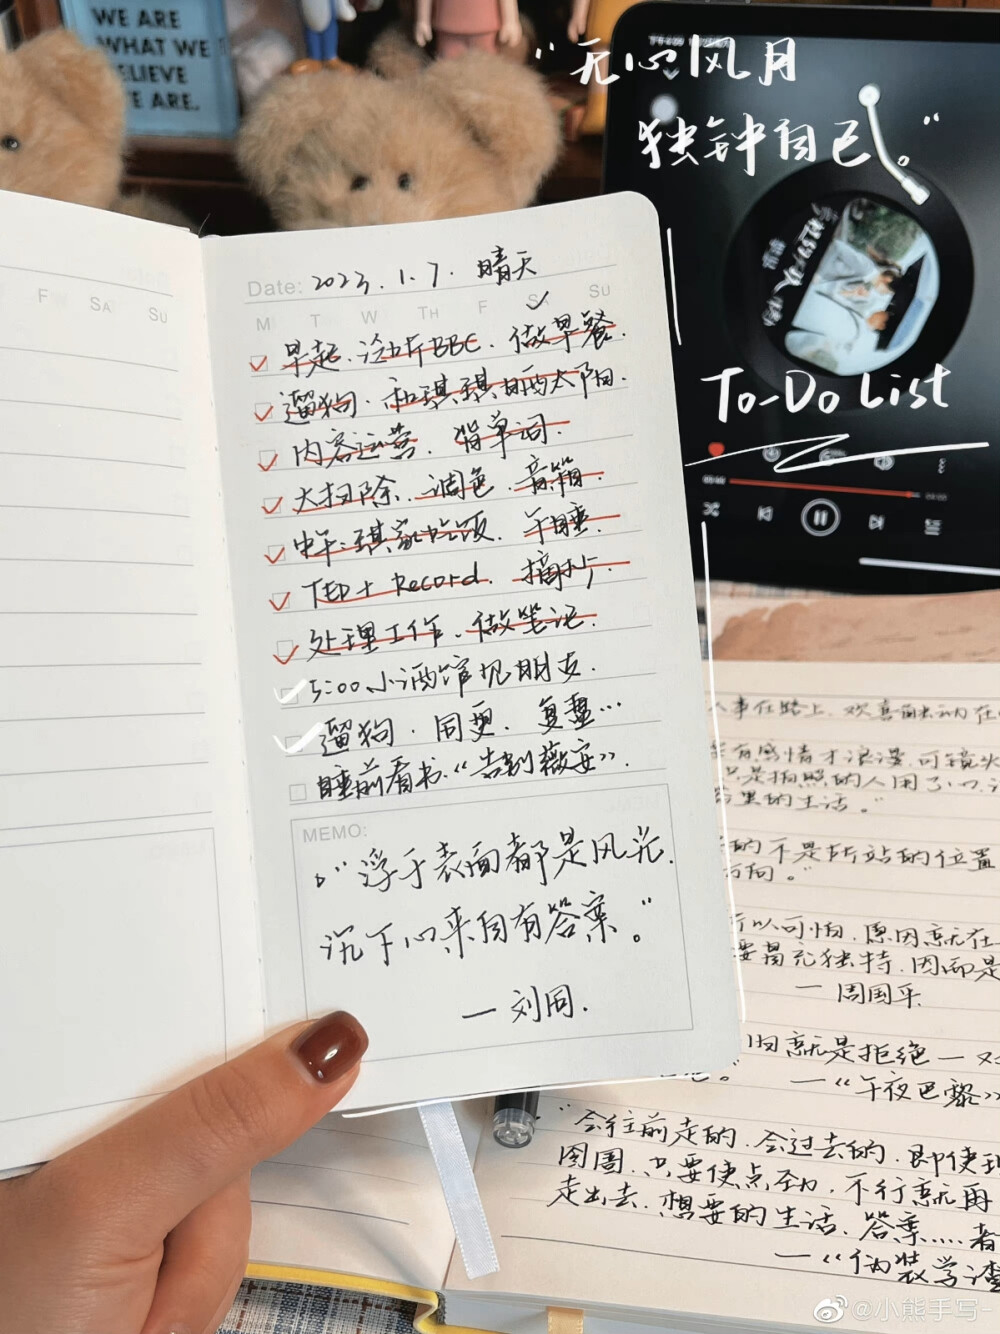 WE ARE
WHAT WE
BELIEVE
WE ARE.
"无心风月
独钟自己。"
To-Do List
F SA SU
Date: 2023.1.7. 晴天
M T W TH F SA SU
早起. 泛听BBC. 做早餐.
遛狗. 和琪琪晒太阳.
内容运营. 背单词.
大扫除. 调色. 音箱.
中午: 琪家吃饭. 午睡.
TED + Record. 摘抄.
处理工作. 做笔记.
5:00 小酒馆见朋友.
遛狗. 同更. 复盘…
睡前看书.《告别薇安》.
MEMO:
"浮于表面都是风光.
沉下心来自有答案。"
— 刘同.
人事在路上. 欢喜
有感情才浪漫. 可镜头
只是拍照的人用了心.
里的生活。"
的不是所站的位置
方向。"
所以可怕. 原因就在
要冒充独特. 因而是
— 周国平
归就是拒绝一
—《午夜巴黎》
"会往前走的. 会过去的. 即使
囹圄. 只要使点劲. 不行就再
走出去. 想要的生活. 答案……
—《伪装学渣
@小熊手写-